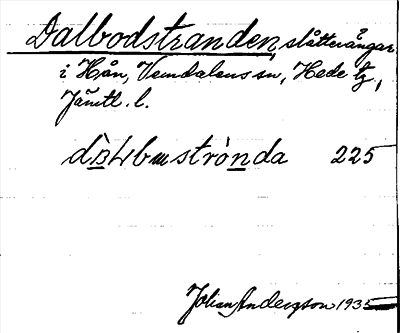 Dalbodstranden, slåtterängar
i Hån, Vemdalens sn, Hede tg,
Jämtl. l.
225
Johan Anderzson 1935